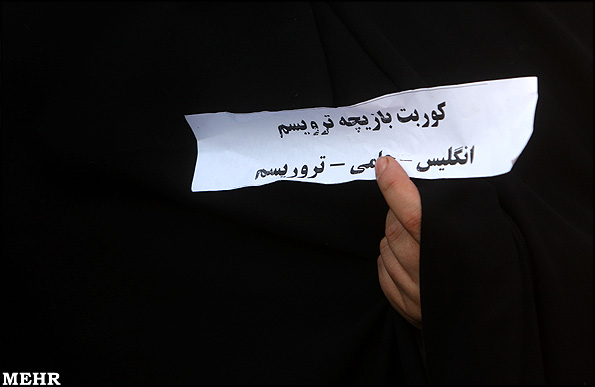 کوربت بازیچه تروریسم
انگلیس - حامی - تروریسم
MEHR